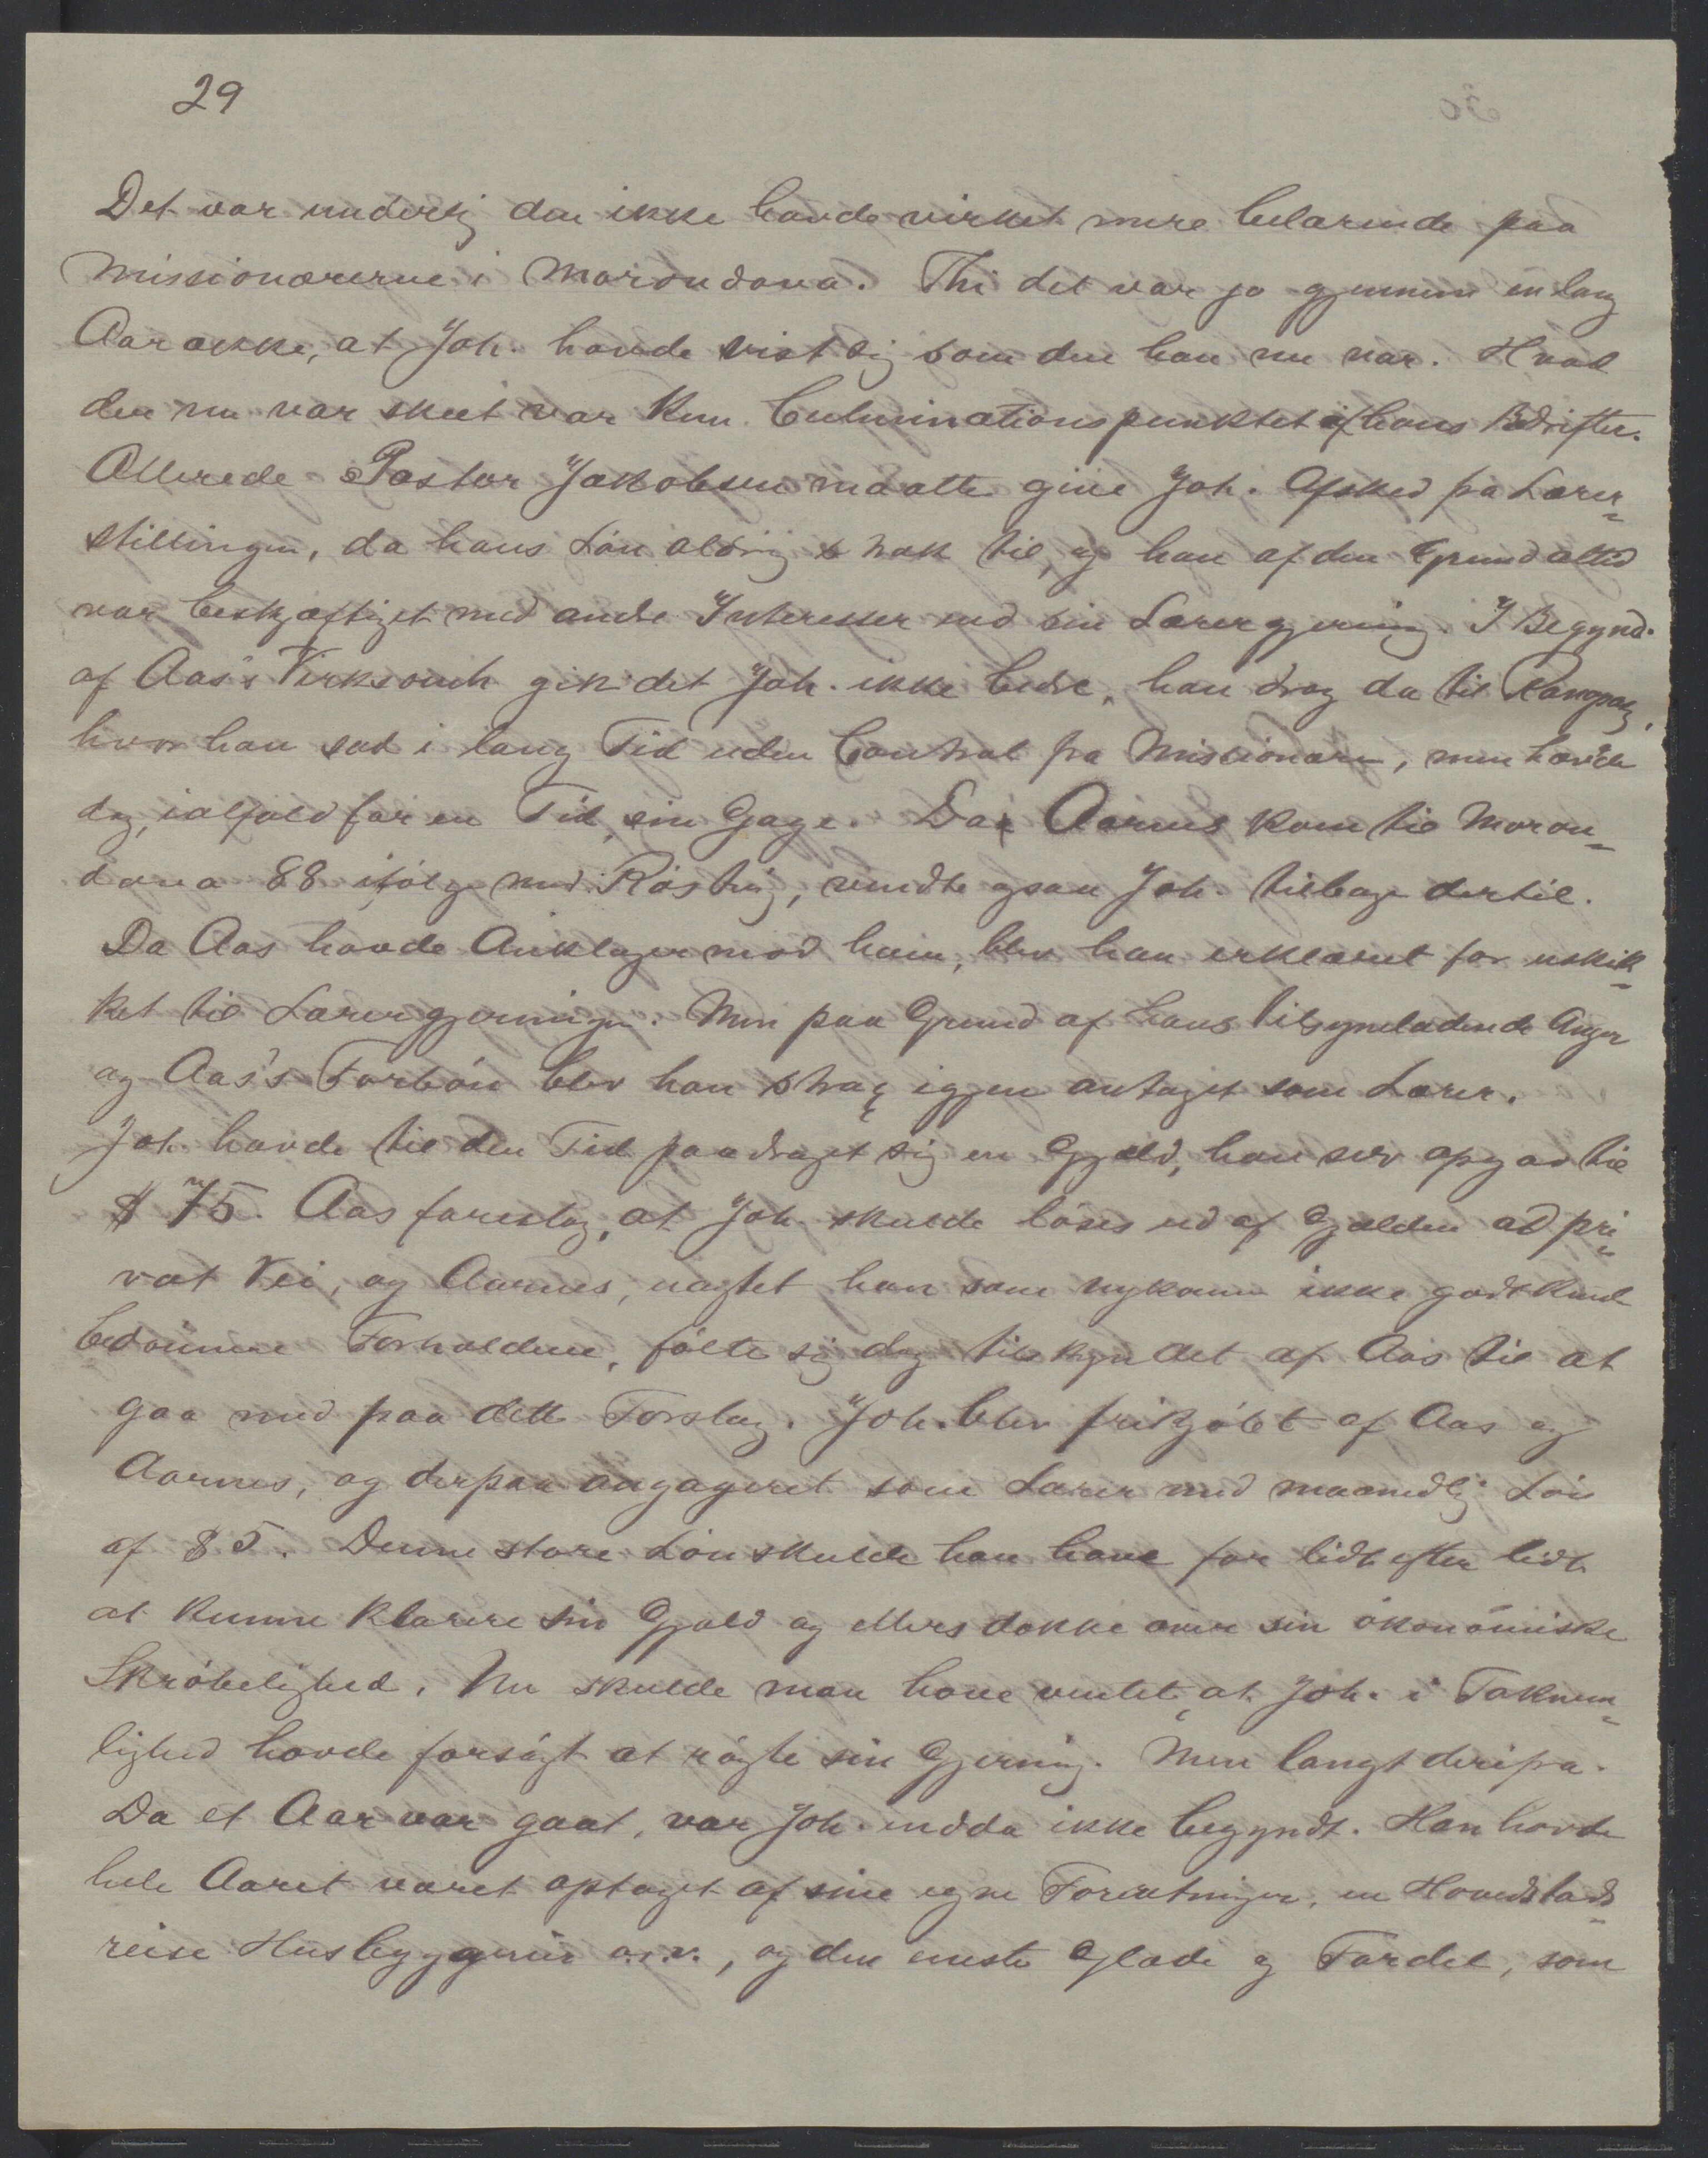 29
Det var underlig den ikke havde virket mere belærende paa
Missionærerne i Morondava. Thi det var jo gjennem en lang
Aarrække, at Joh. havde vist sig som den han nu var. Hvad
der nu var skeet var kun Culminationspunktet af hans Bedrifter.
Allerede Pastor Jakobsen maatte give Joh. Afsked fra Lærer-
stillingen, da hans Løn aldrig strak til, og han af den Grund altid
var beskjæftiget med andre Interesser end sin Lærergjerning. I Begynd.
af Aas's Virksomh gik det Joh. ikke bedre, han drog da til
hvor han sad i lang Tid uden Control fra Missionæren, men hævede
dog, ialfald for en Tid, sin Gage. Da Aarnes kom til Moron-
dava 88 ifølge med Røstvig, vendte ogsaa Joh. tilbage dertil.
Da Aas havde Anklager mod ham, blev han erklæret for uskik-
ket til Lærergjerningen. Men paa Grund af hans tilsyneladende Anger
og Aas's Forbøn blev han strax igjen antaget som Lærer.
Joh. havde til den Tid paadraget sig en Gjæld, han selv opgav til
$ 75. Aas foreslog, at Joh. skulde løses ud af Gjælden ad pri-
vat Vei, og Aarnes, uagtet han som nykommen ikke godt kunde
bedømme Forholdene, følte sig dog tilskyndet af Aas til at
gaa med paa dette Forslag. Joh. blev frikjøbt af Aas og
Aarnes, og derpaa engageret som Lærer med maanedlig Løn
af $ 5. Denne store Løn skulde han have for lidt efter lidt
at kunne klarere sin Gjæld og ellers dække over sin økonomiske
Skrøbelighed. Nu skulde man have ventet, at Joh. i Taknem-
lighed havde forsøgt at røgte sin Gjerning. Men langt derifra.
Da et Aar var gaat, var Joh. endda ikke begyndt. Han havde
hele Aaret været optaget af sine egne Forretninger, en Hovedstads-
reise Husbyggerie o.s.v., og den eneste Glæde og Fordel, som